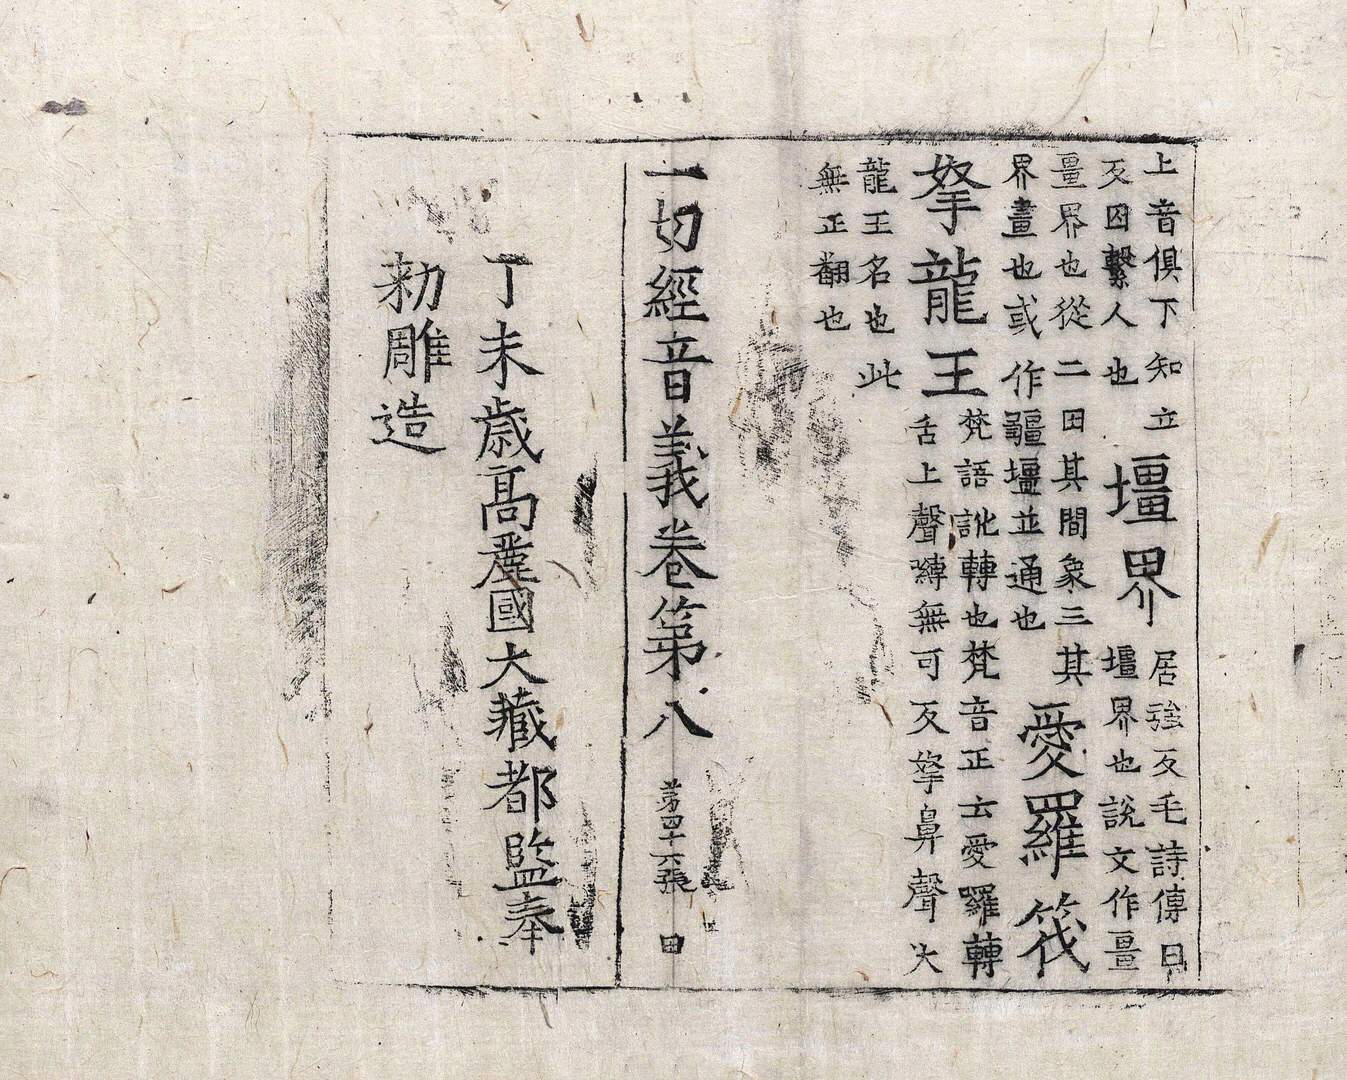 上音俱下知立
反囚繫人也
壃界
居強反毛詩傳曰
壃界也說文作畺
畺界也從二田其間象三其
界畫也或作疆壃並通也
愛羅筏
拏龍王
梵語訛轉也梵音正云愛羅轉
舌上聲囀無可反拏鼻聲大
龍王名也此
無正翻也
一切經音義卷第八
第四十六張 田
丁未歲高麗國大藏都監奉
勅雕造